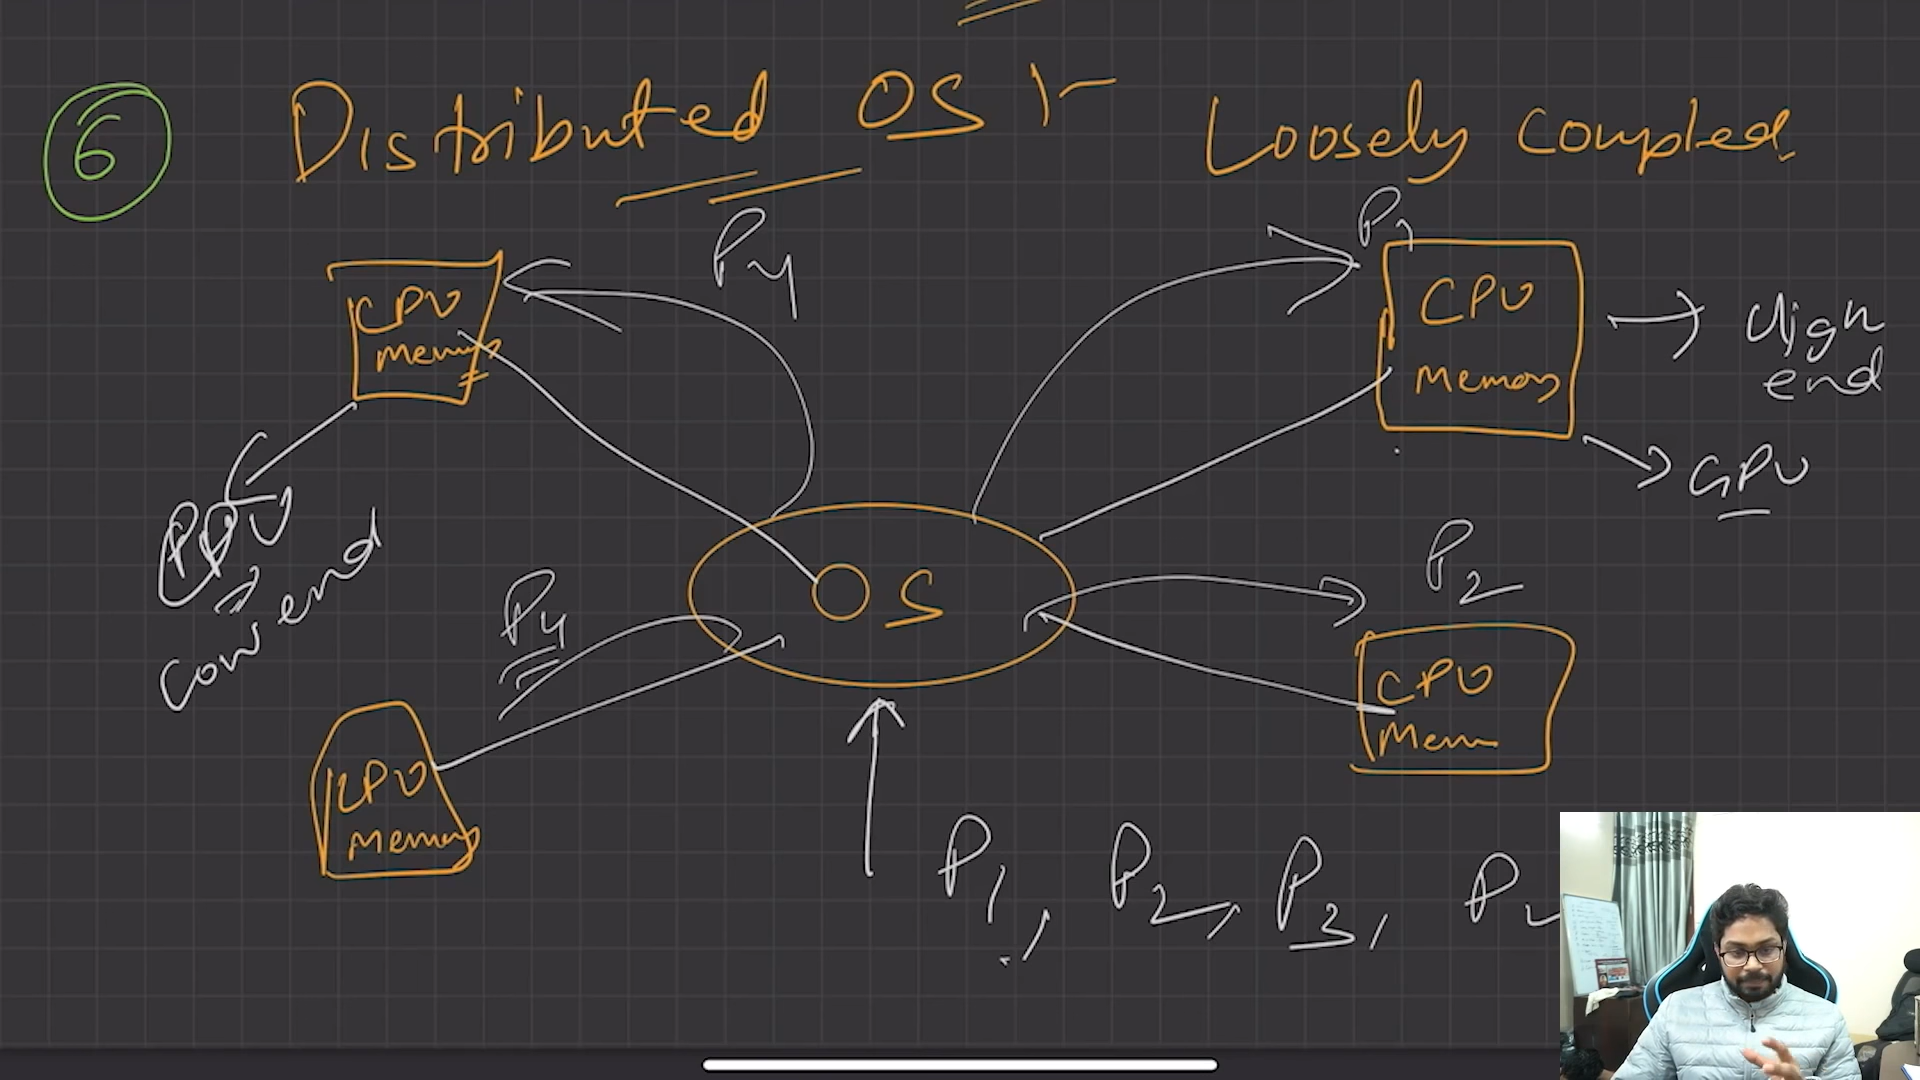 6 Distributed OS :- Loosely Coupled
P4
P1
CPU
Memory
CPU
Memory
High
end
GPU
P2
Low end
P4
OS
CPU
Mem
CPU
Memory
P1, P2, P3, P4